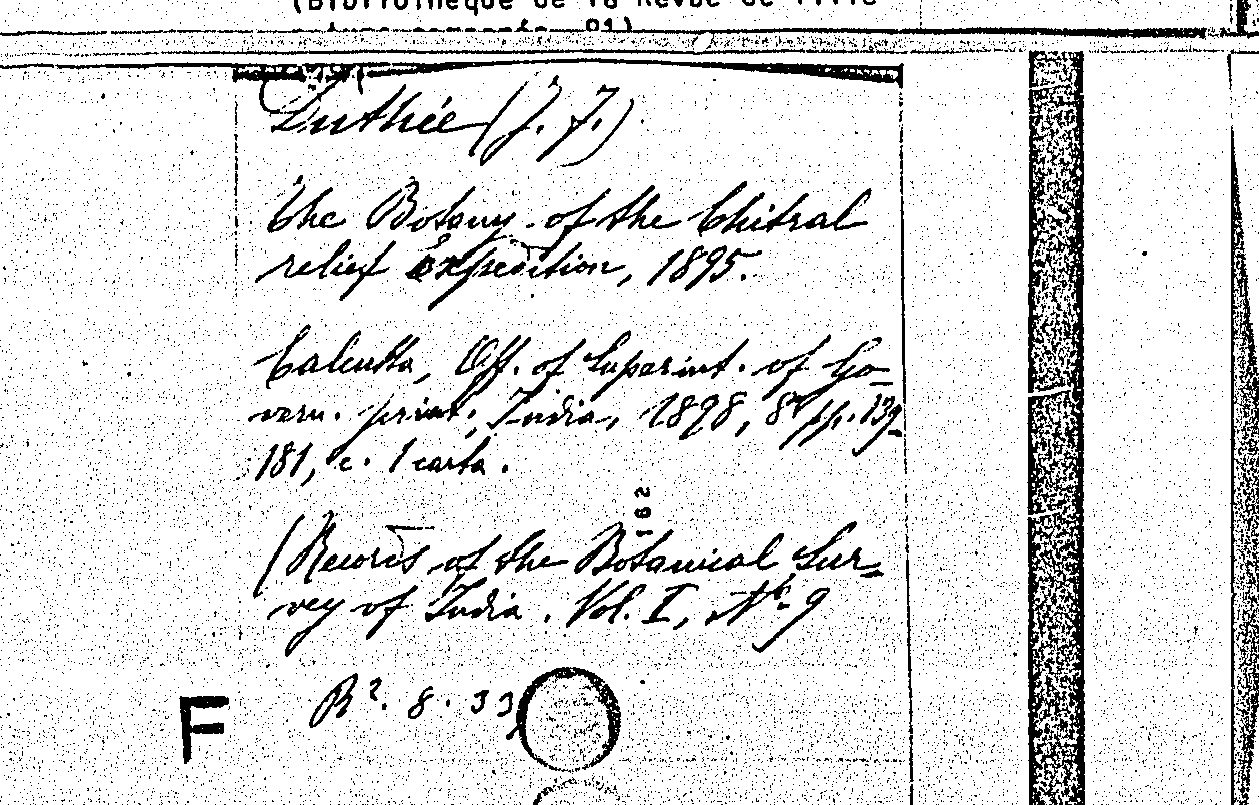 (Bibliothèque de la Revue de Litté
Duthie (J. F.)
The Botany of the Chitral
relief Expedition, 1895.
Calcutta, Off. of Superint. of Go-
vern. print., India, 1898, 8° pp. 139-
181, c. 1 carta.
(Records of the Botanical Sur-
vey of India. Vol. I, No. 9
R². 8. 33
F